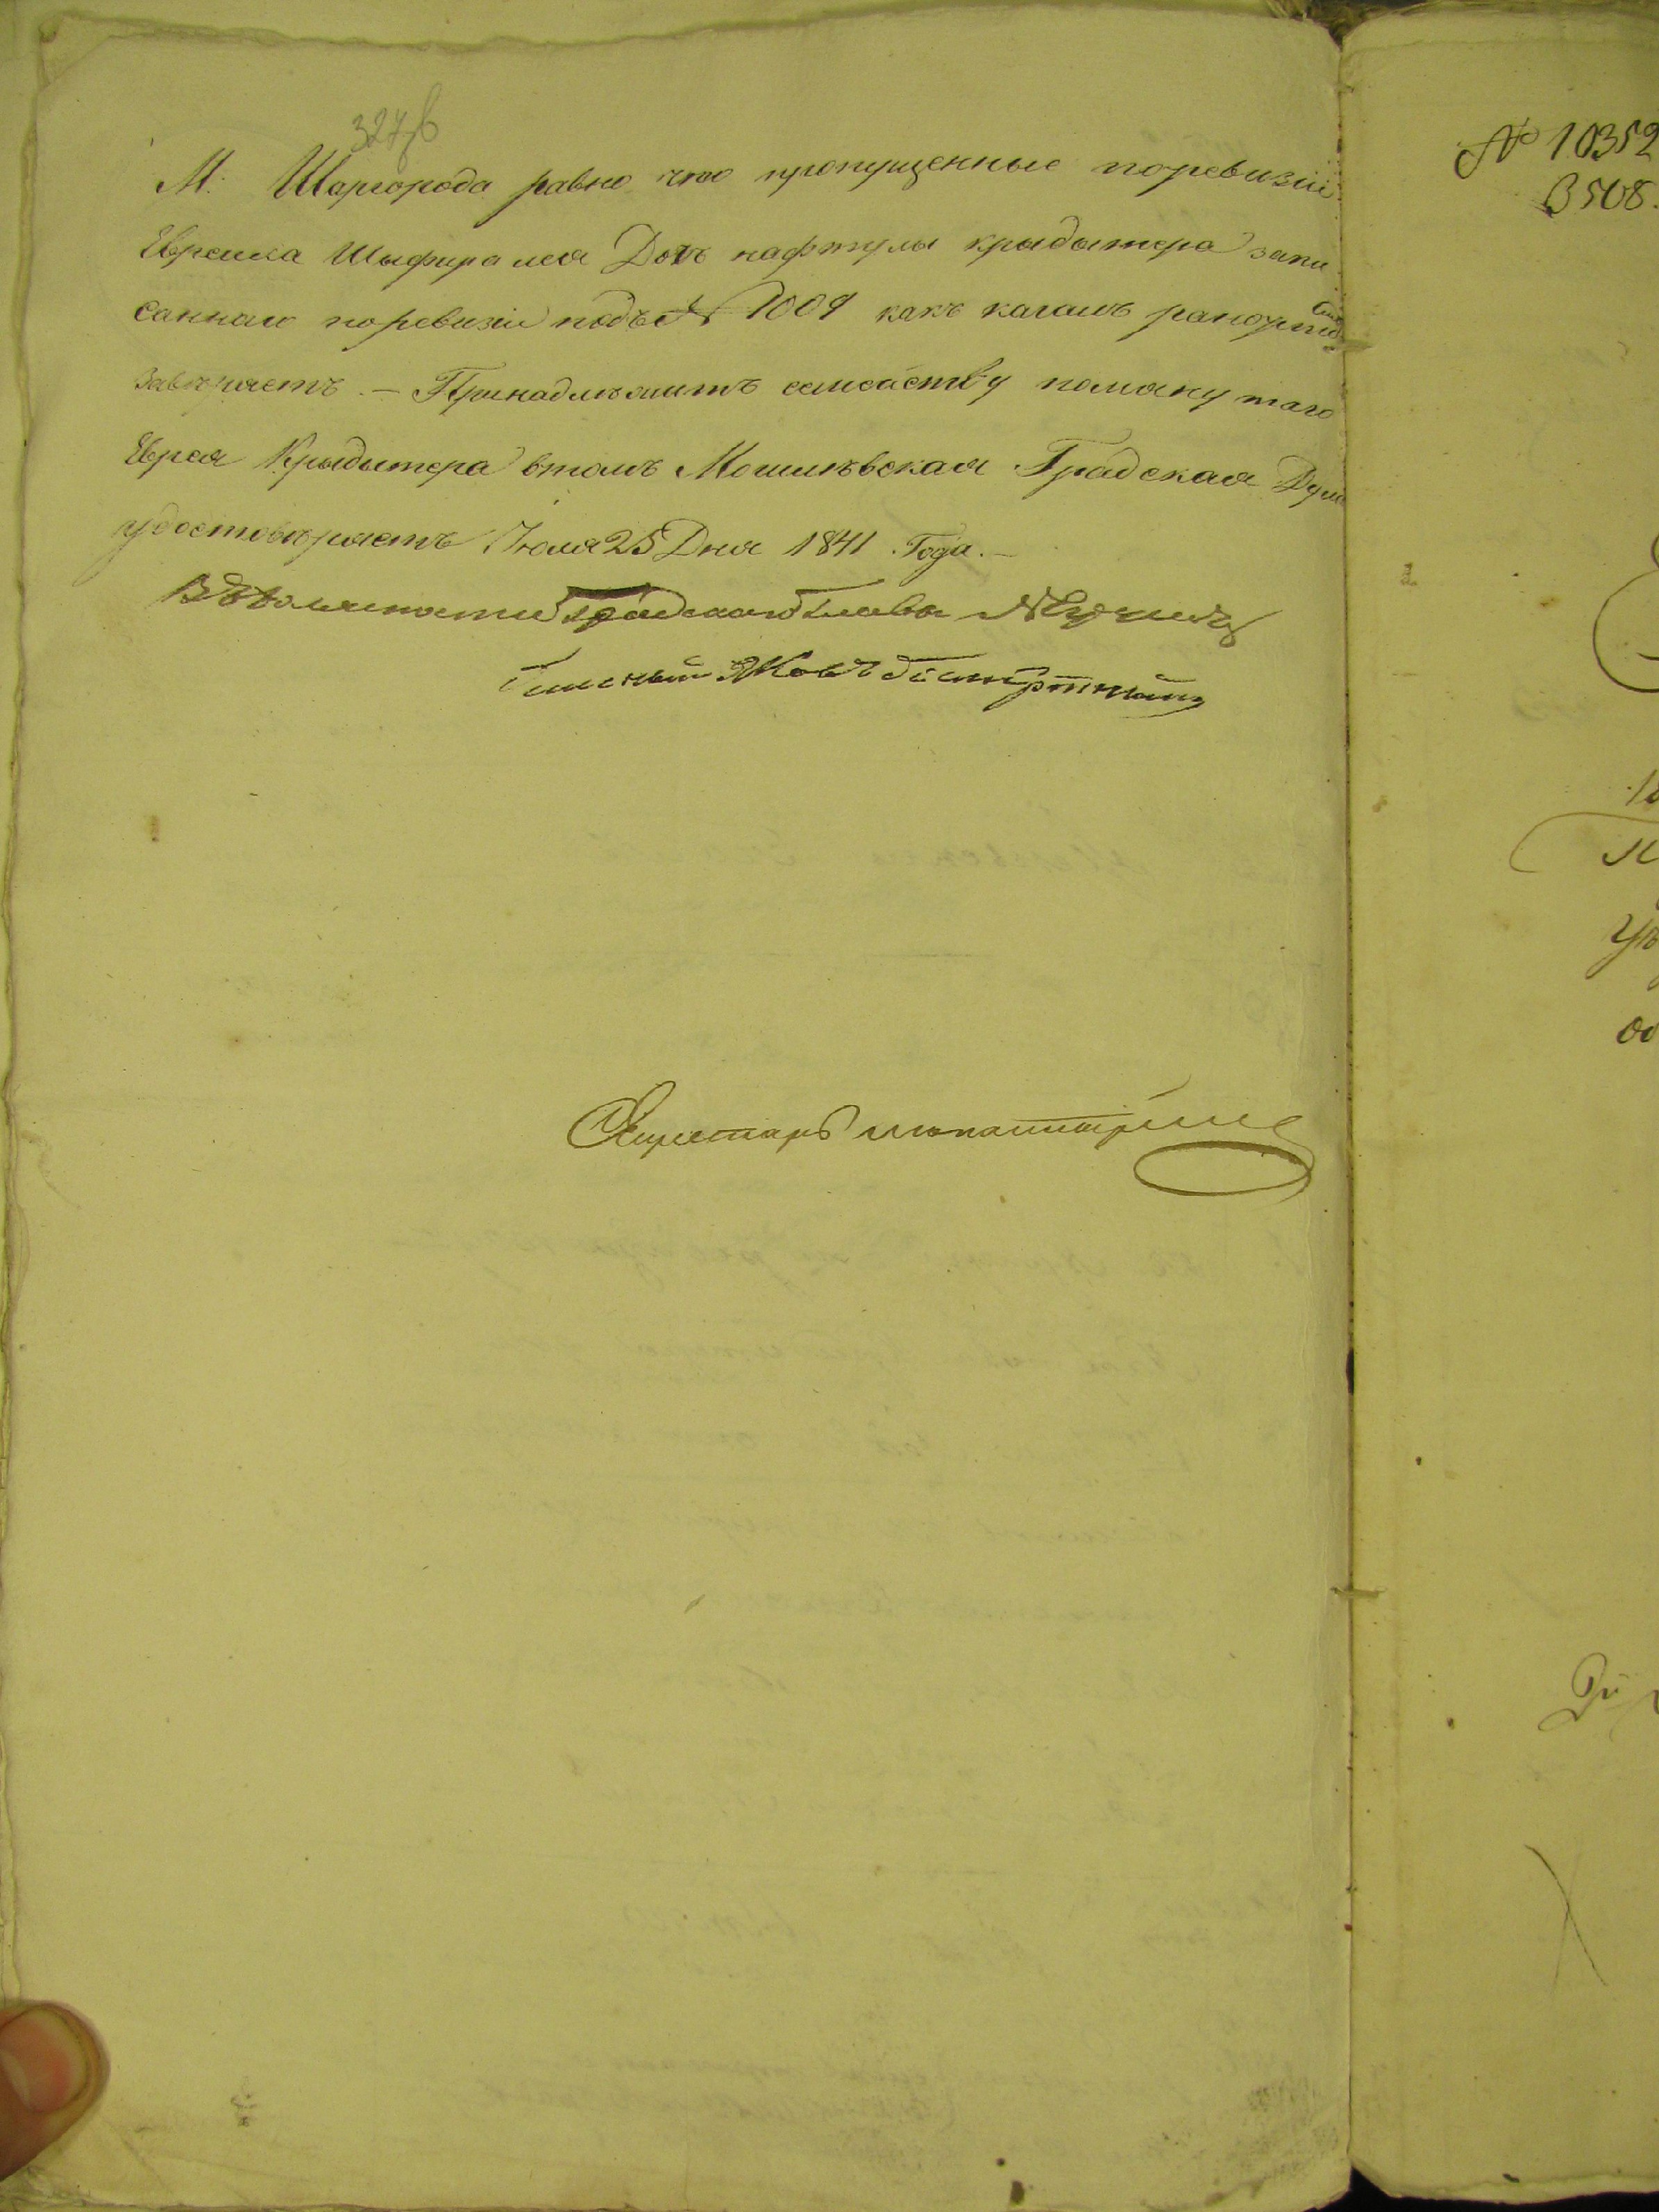 327об
М: Шаргорода равно что пропущенные поревизіи
Евреика Шыфра леа Дочь нафтулы крыдытера запи
саннаго поревизіи подъ № 1009 какъ кагалъ рапортъ
завѣряетъ. — Принадлѣжитъ семейству помяну таго
Еврея Крыдытера втомъ Могилѣвская Градская Дума
удостовѣряетъ Июля 25 Дня 1841 Года. —
Градскаго Главы
Гласный
Секретарь
№ 10352
В 508.